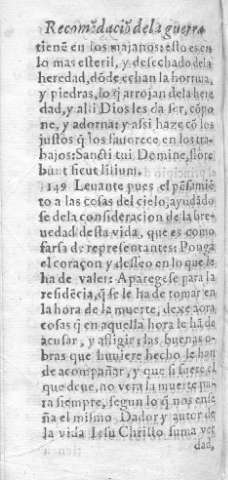 Recom̃dació dela guerra
tienẽ en los majanos: esto es en
lo mas esteril, y desechado dela
heredad, dõde echan la hornija,
y piedras, lo q̃ arrojan dela here
dad, y assi Dios les da ser, cõpo
ne, y adorna: y assi haze cõ los
justos q̃ los fauorece en los tra-
bajos: Sancti tui Domine, flore
bunt sicut lilium.
149 Leuante pues el pẽsamiẽ
to a las cosas del cielo, ayudãdo
se dela consideracion de la bre-
uedad desta vida, que es como
farsa de representantes: Ponga
el coraçon y desseo en lo que le
ha de valer: Aparegese para la
residẽcia, q̃ se le ha de tomar en
la hora de la muerte, dexe aora
cosas q̃ en aquella hora le hã de
acusar, y afligir: las buenas o-
bras que huuiere hecho le han
de acompañar, y que si fuere el
que deue, no vera la muerte pa-
ra siempre, segun lo q̃ nos ense
ña el mismo Dador y autor de
la vida Iesu Christo suma ver
dad,